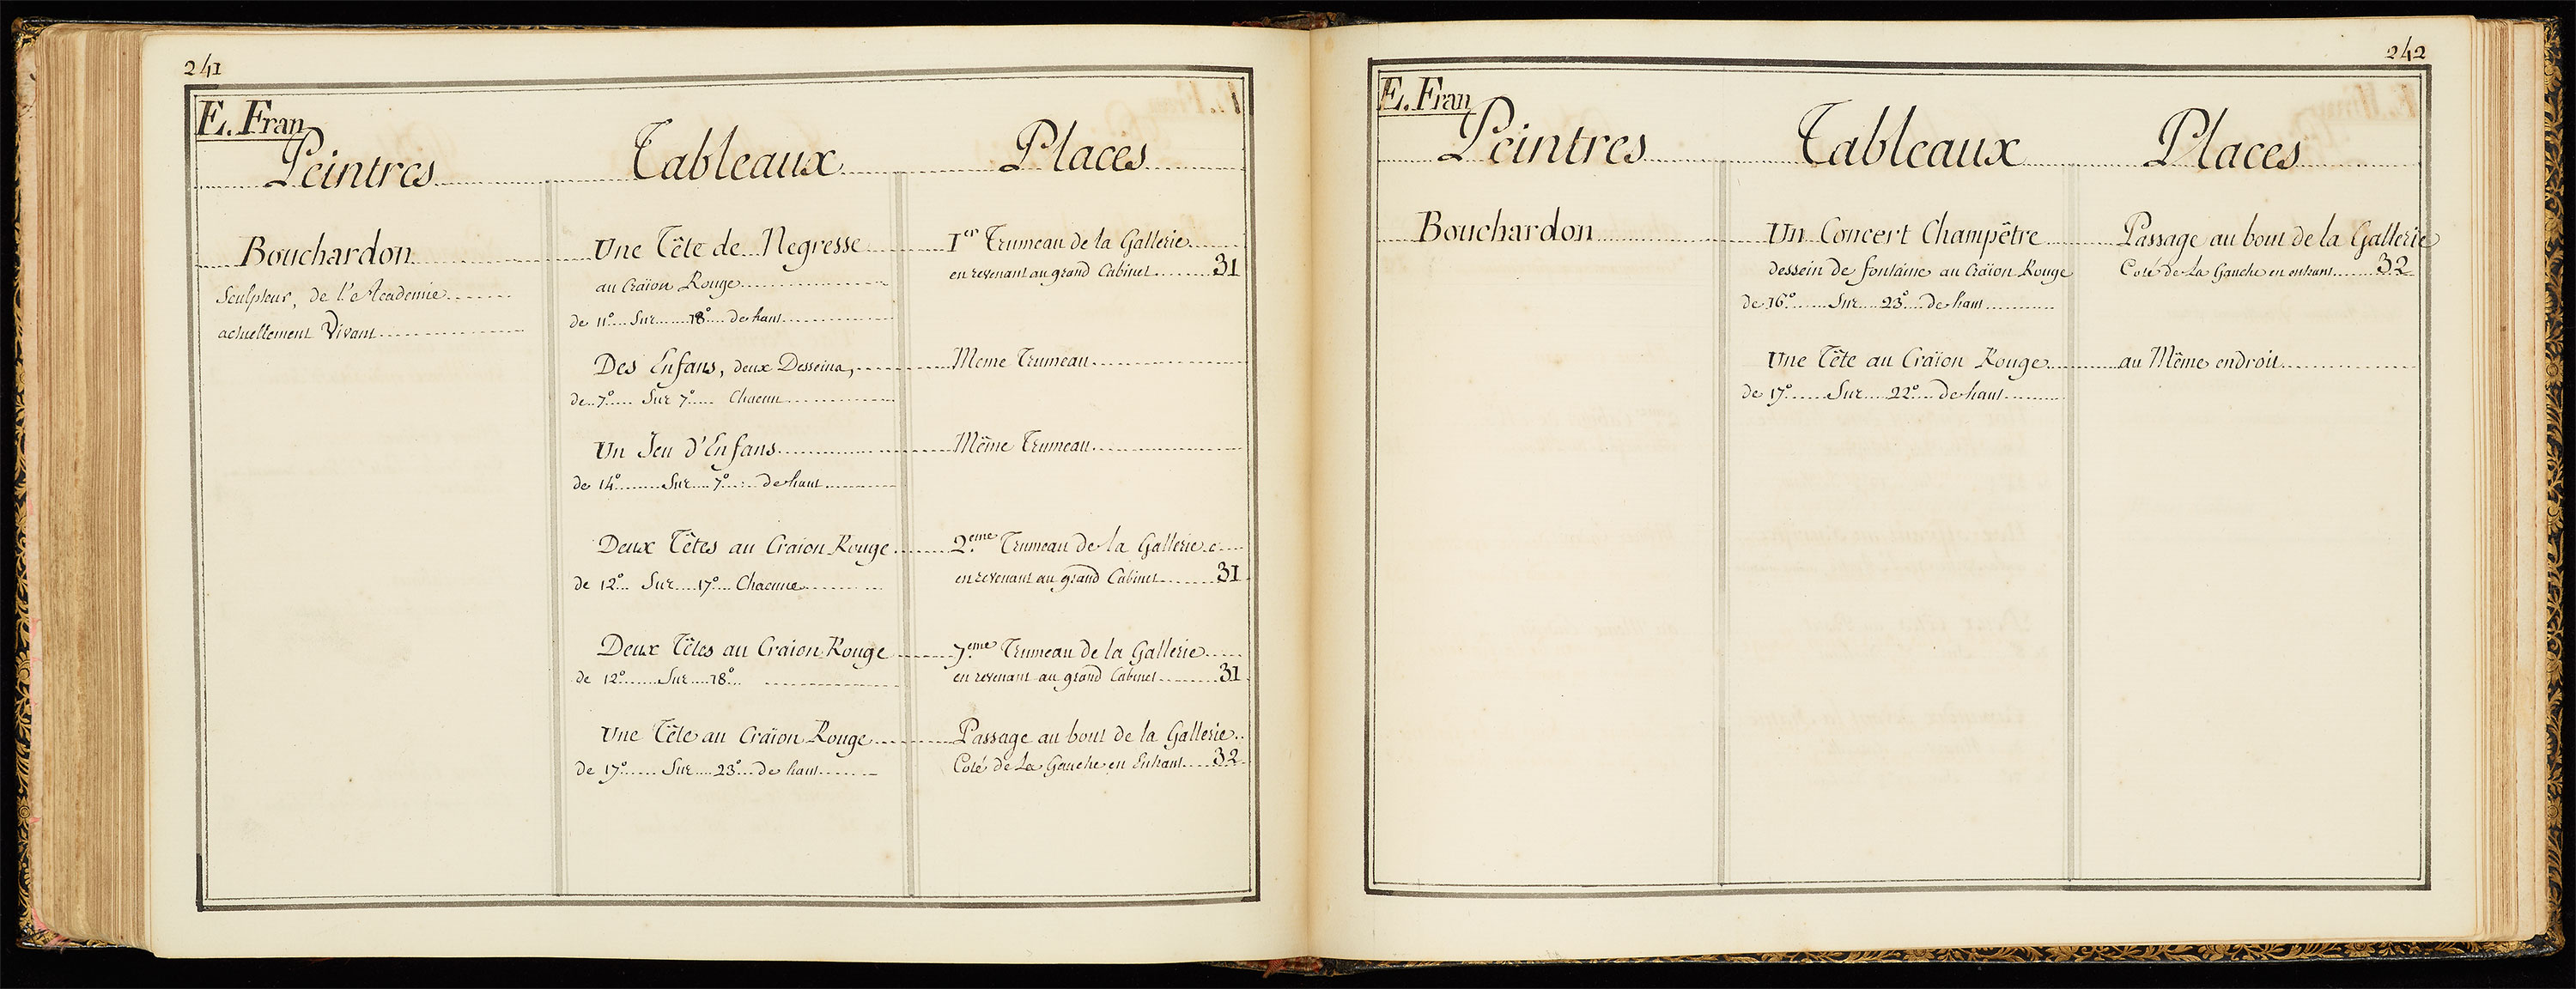 241
E. Fran
Peintres Tableaux Places
Bouchardon Une Tête de Negresse 1er Trumeau de la Gallerie
Sculpteur, de l'Academie au Craïon Rouge en revenant au grand Cabinet 31
actuellement Vivant de 11° Sur 18° de haut
Des Enfans, deux Desseins, Meme Trumeau
de 7° Sur 7° Chacun
Un Jeu d'Enfans Même Trumeau
de 14° Sur 7° de haut
Deux Têtes au Craion Rouge 2eme Trumeau de la Gallerie
de 12° Sur 17° Chacune en revenant au grand Cabinet 31
Deux Têtes au Craion Rouge 7eme Trumeau de la Gallerie
de 12° Sur 18° en revenant au grand Cabinet 31
Une Tête au Craïon Rouge Passage au bout de la Gallerie
de 17° Sur 23° de haut Coté de La Gauche en Entrant 32
242
E. Fran
Peintres Tableaux Places
Bouchardon Un Concert Champêtre Passage au bout de la Gallerie
dessein de fontaine au Craïon Rouge Coté de La Gauche en entrant 32
de 16° Sur 23° de haut
Une Tête au Craïon Rouge au Même endroit
de 17° Sur 22° de haut